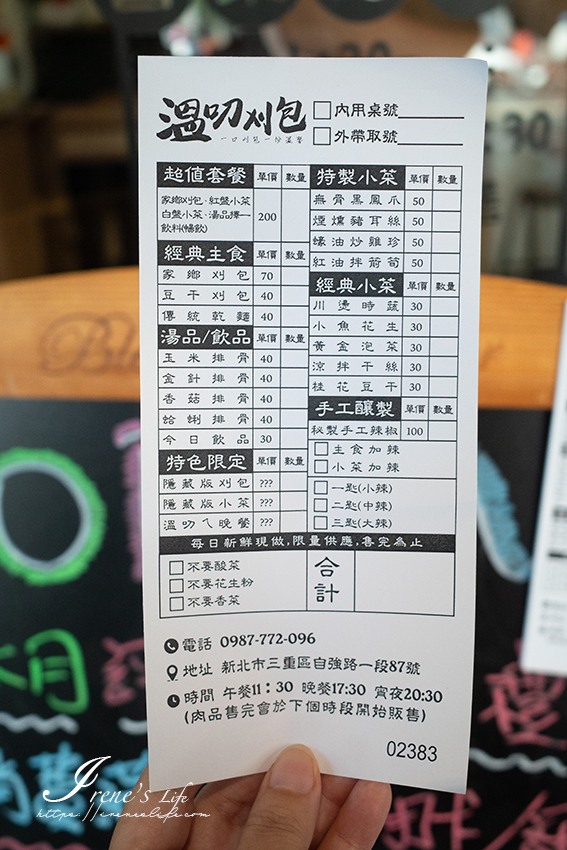 溫叨刈包
一口刈包一份溫馨
內用桌號
外帶取號
超值套餐 單價 數量
家鄉刈包、紅盤小菜
白盤小菜、湯品擇一
飲料(暢飲)
200
經典主食 單價 數量
家鄉刈包 70
豆干刈包 40
傳統乾麵 40
湯品/飲品 單價 數量
玉米排骨 40
金針排骨 40
香菇排骨 40
蛤蜊排骨 40
今日飲品 30
特色限定 單價 數量
隱藏版刈包 ???
隱藏版小菜 ???
溫叨ㄟ晚餐 ???
特製小菜 單價 數量
無骨黑鳳爪 50
煙燻豬耳絲 50
蠔油炒雞珍 50
紅油拌筍筍 50
經典小菜 單價 數量
川燙時蔬 30
小魚花生 30
黃金泡菜 30
涼拌干絲 30
桂花豆干 30
手工釀製 單價 數量
秘製手工辣椒 100
主食加辣
小菜加辣
一匙(小辣)
二匙(中辣)
三匙(大辣)
每日新鮮現做,限量供應,售完為止
不要酸菜
不要花生粉
不要香菜
合計
電話 0987-772-096
地址 新北市三重區自強路一段87號
時間 午餐11:30 晚餐17:30 宵夜20:30
(肉品售完會於下個時段開始販售)
02383
Irene's Life
https://ireneslife.com/